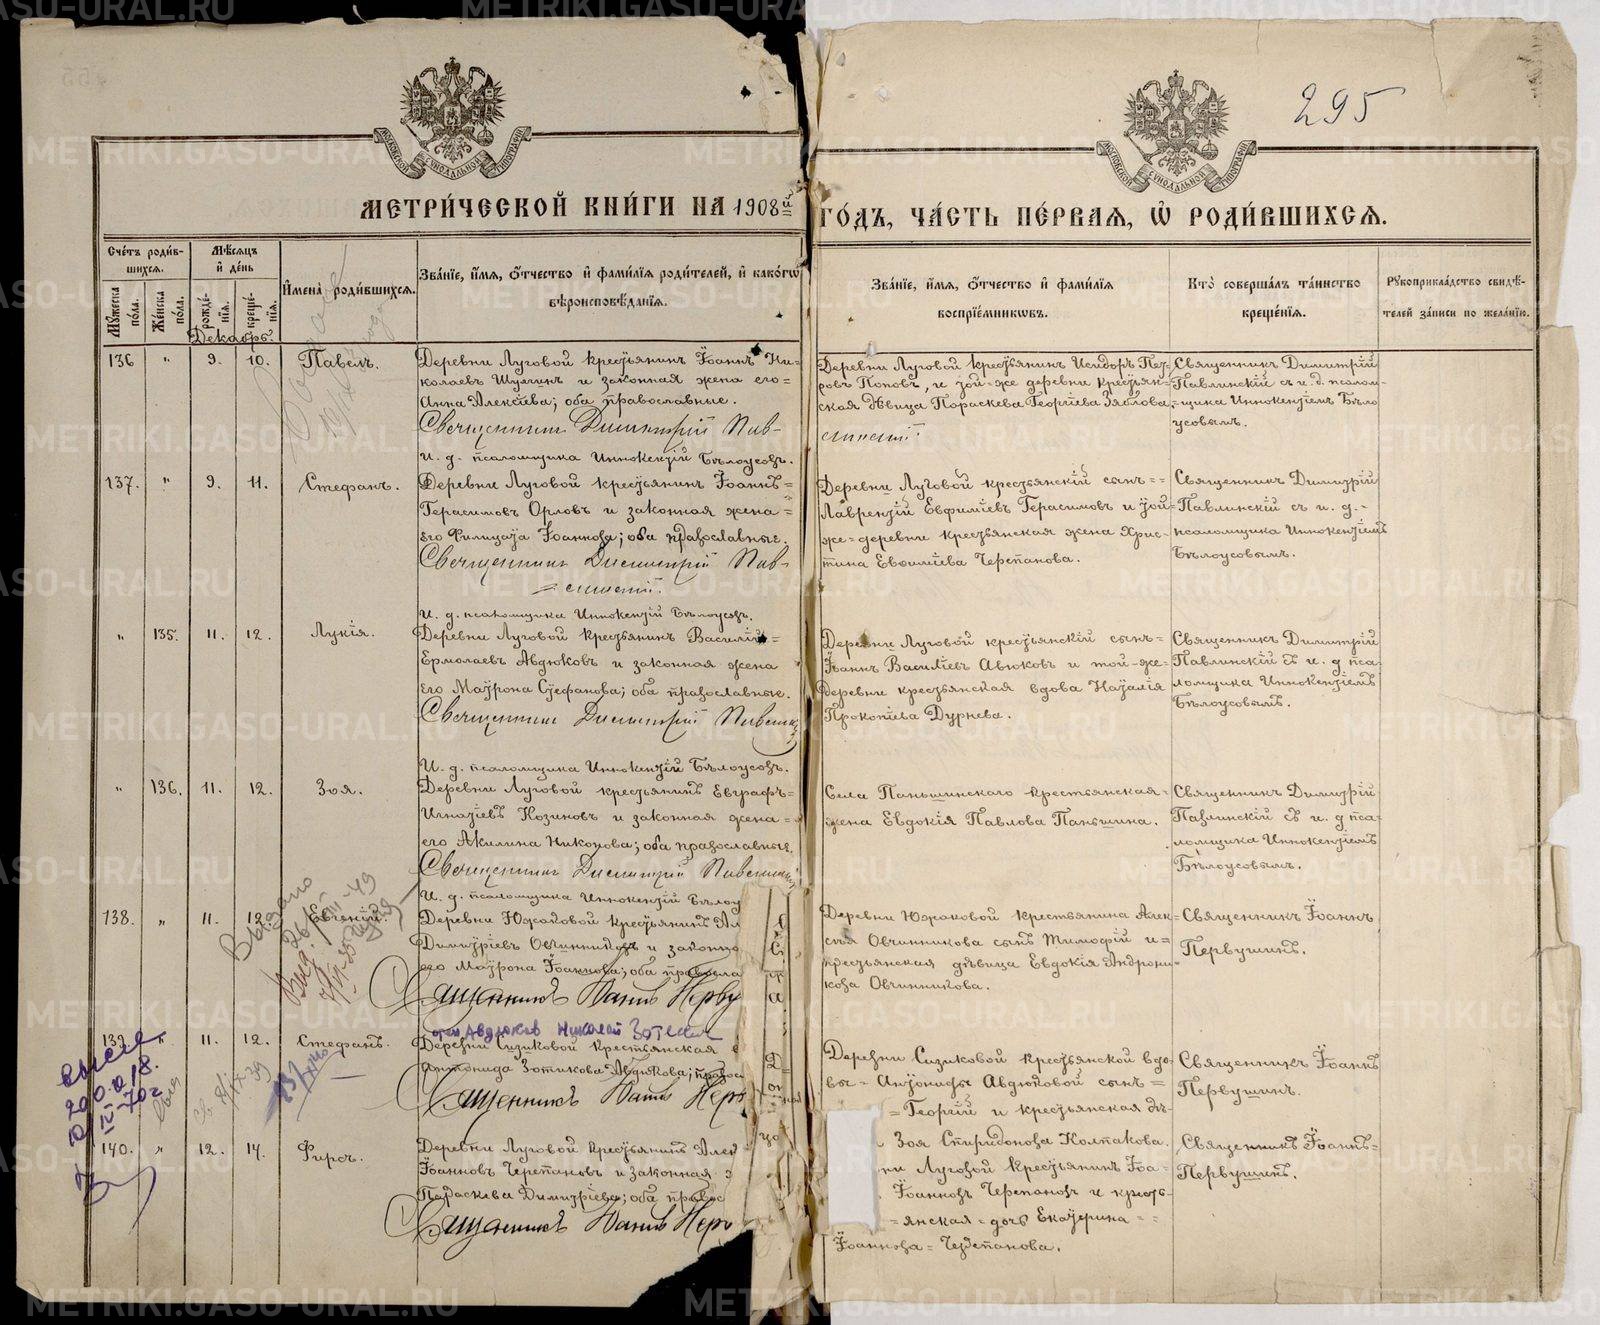 295
МОСКОВСКОЙ СѴНОДАЛЬНОЙ ТИПОГРАФІИ
МОСКОВСКОЙ СѴНОДАЛЬНОЙ ТИПОГРАФІИ
МЕТРИ́ЧЕСКОЙ КНИ́ГИ НА 1908й ГО́ДЪ, ЧА́СТЬ ПЕ́РВАЯ, Ѡ РОДИ́ВШИХСЯ.
Сче́тъ роди́в-
шихся.
Мѹжеска по́ла.
Же́нска по́ла.
Мѣ́сяцъ
и де́нь
рожде́нія.
креще́нія.
И́мена̀ роди́вшихся.
Зва́ніе, и́мя, о́тчество и фами́лія роди́телей, и како́гѡ
вѣроисповѣ́данія.
Зва́ніе, и́мя, о́тчество и фами́лія
воспріе́мниковъ.
Кто̀ соверша́лъ та́инство
креще́нія.
Рѹкоприкла́дство свидѣ́-
телей за́писи по жела́нію.
Декабрь.
136 " 9. 10. Павелъ.
Деревни Луговой крестьянинъ Іоаннъ Ни-
колаевъ Шулинъ и законная жена его=
Анна Алексіева; оба православные.
Священникъ Димитрій Пав-
линскій
И. д. псаломщика Иннокентій Бѣлоусовъ.
Деревни Луговой крестьянинъ Исидоръ Пет-
ровъ Поповъ, и той-же деревни крестьян-
ская дѣвица Параскева Георгіева Зяблова.
Священникъ Димитрій
Павлинскій съ и. д. псалом-
щика Иннокентіемъ Бѣло
усовымъ.
137. " 9. 11. Стефанъ.
Деревни Луговой крестьянинъ Іоаннъ=
Герасимовъ Орловъ и законная жена=
его Филицата Іоаннова; оба православные.
Священникъ Димитрій Пав-
=линскій.
И. д. псаломщика Иннокентій Бѣлоусовъ.
Деревни Луговой крестьянскій сынъ==
Лаврентій Евфиміевъ Герасимовъ и той-
же=деревни крестьянская жена Хрис-
тина Евфиміева Черепанова.
Священникъ Димитрій
Павлинскій съ и. д.-
псаломщика Иннокентіемъ
Бѣлоусовымъ.
" 135. 11. 12. Лукія.
Деревни Луговой крестьянинъ Василій=
Ермолаевъ Авдюковъ и законная жена
его Маѵрона Стефанова; оба православные.
Священникъ Димитрій Павлинскій
И. д. псаломщика Иннокентій Бѣлоусовъ.
Деревни Луговой крестьянскій сынъ=
Іоаннъ Василіевъ Авюковъ и той-же=
деревни крестьянская вдова Наталія
Прокопіева Дурнева.
Священникъ Димитрій
Павлинскій съ и. д пса-
ломщика Иннокентіемъ
Бѣлоусовымъ.
" 136. 11. 12. Зоя.
Деревни Луговой крестьянинъ Евграфъ=
Игнатіевъ Козиновъ и законная жена=
его Акилина Никонова; оба православные.
Священникъ Димитрій Павлинскій
И. д. псаломщика Иннокентій Бѣлоу
Села Паньшинскаго крестьянская=
жена Евдокія Павлова Паньшина.
Священникъ Димитрій
Павлинскій съ и. д пса-
ломщика Иннокентіемъ
Бѣлоусовымъ.
138. " 11. 12. Евгеній.
Деревни Южаковой крестьянинъ Ал
Димитріевъ Овчинниковъ и законна
его Маѵрона Іоаннова; оба правосла
Священникъ Іоаннъ Перву
Деревни Южаковой крестьянина Алек-
сѣя Овчинникова сынъ Тимофій и=
крестьянская дѣвица Евдокія Андрони-
кова Овчинникова.
Священникъ Іоаннъ
Первушинъ.
139. " 11. 12. Стефанъ.
отец Авдюков Николай Зотеич
Деревни Сизиковой крестьянская
Антонида Зотикова Авдюкова; правос
Священникъ Іоаннъ Перв
Деревни Сизиковой крестьянской вдо-
вы=Антониды Авдюковой сынъ=
=Георгій и крестьянская дѣ-
Зоя Спиридонова Колпакова.
Священникъ Іоаннъ
Первушинъ.
140. " 12. 14. Фирсъ.
Деревни Луговой крестьянинъ Алек
Іоанновъ Черепановъ и законная
Параскева Димитріева; оба правос
Священникъ Іоаннъ Перв
ни Луговой крестьянинъ Іоа-
Іоанновъ Черепановъ и кресть-
=янская=дочь Екатерина==
Іоаннова=Черепанова.
Священникъ Іоаннъ=
Первушинъ.
METRIKI.GASO-URAL.RU